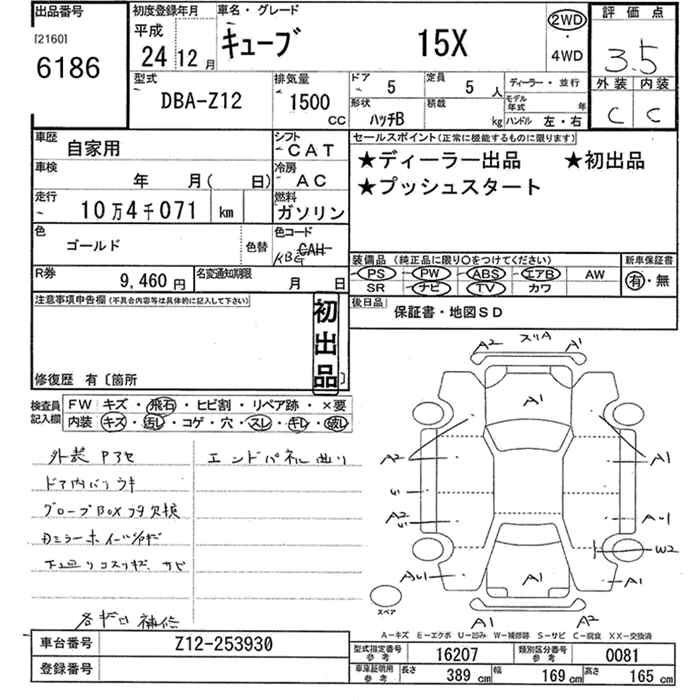 出品番号 初度登録年月 車名・グレード 評価点
[2160] 平成 キューブ 15X 2WD ・ 4WD 3.5
6186 24 12月 外装 内装
型式 排気量 ドア 定員 ディーラー・並行 C C
DBA-Z12 1500 CC 5 5人 モデル年式 年
形状 積載 ハッチB kg ハンドル 左・右
車歴 自家用 シフト CAT セールスポイント(正常に機能するものに限ります)
車検 年 月( 日) 冷房 AC ★ディーラー出品 ★初出品
走行 10万4千071 km 燃料 ガソリン ★プッシュスタート
色 ゴールド 色替 色コード CAH KBG
装備品(純正品に限り○をつけてください) 新車保証書
R券 9,460円 名変通知期限 月 日 PS PW ABS エアB AW 有・無
SR ナビ TV カワ
注意事項申告欄(不具合内容等は具体的に記入して下さい) 初出品 後日品 保証書・地図SD
修復歴 有〔箇所 〕
検査員記入欄 FW キズ・飛石・ヒビ割・リペア跡・×要
内装 キズ・汚レ・コゲ・穴・スレ・キレ・破レ
外装 Pアセ エンドパネル曲り
グローブBOXフタ欠損
下廻りコスリキズ、サビ
各キロ補修
A2 スリA A1
A1
A2 A1
A2 AU1
W2
AU1 A1 A1
A1 A2
スペア
A-キズ E-エクボ U-凹み W-補修跡 S-サビ C-腐食 XX-交換済
車台番号 Z12-253930 型式指定番号 参考 16207 類別区分番号 参考 0081
登録番号 車庫証明用 参考 長さ 389cm 幅 169cm 高さ 165cm